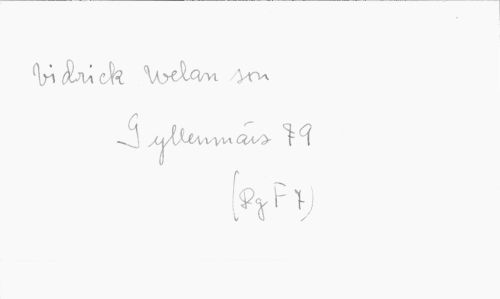 Vidrick Welan son
Gyllenmärs 79
(Rg F 7)